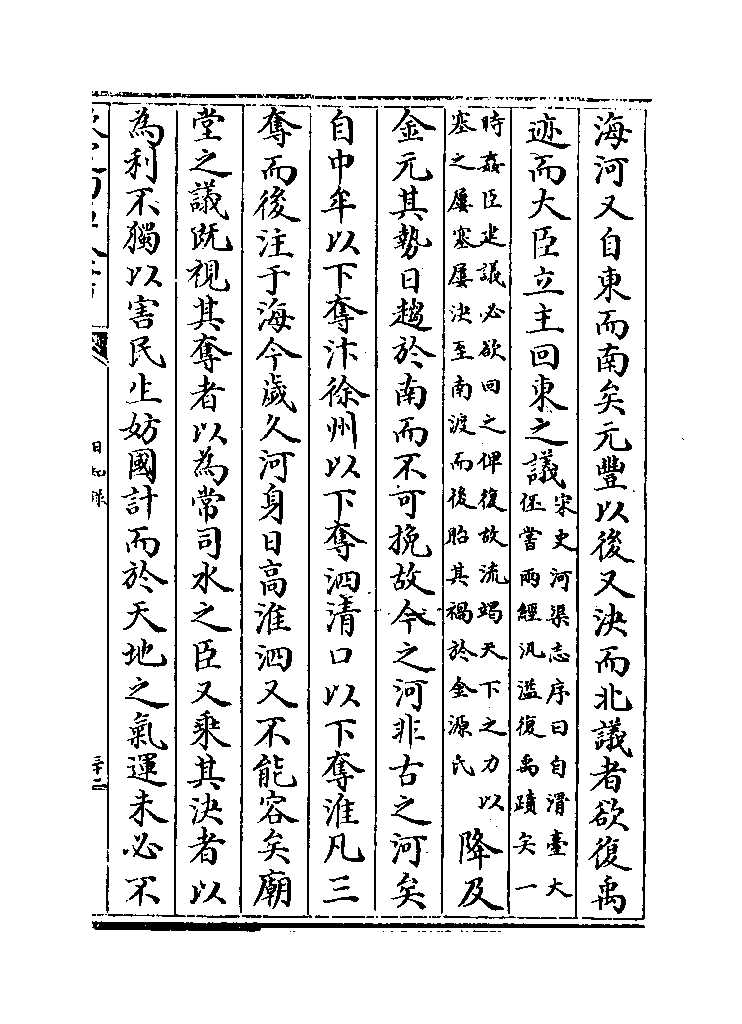 海河又自東而南矣元豐以後又決而北議者欲復禹
迹而大臣立主回東之議宋史河渠志序曰自滑臺大
伾嘗兩經汎溢復禹蹟矣一
時姦臣建議必欲回之俾復故流竭天下之力以
塞之屢塞屢決至南渡而後貽其禍於金源氏降及
金元其勢日趨於南而不可挽故今之河非古之河矣
自中牟以下奪汴徐州以下奪泗清口以下奪淮凡三
奪而後注于海今歲久河身日高淮泗又不能容矣廟
堂之議既視其奪者以為常司水之臣又乘其決者以
為利不獨以害民生妨國計而於天地之氣運未必不
日知錄